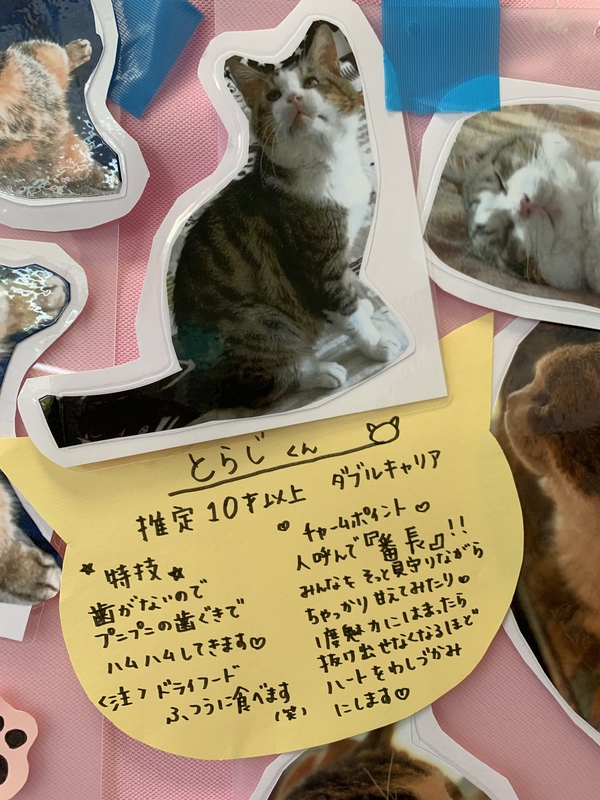 とらじくん
推定10才以上 ダブルキャリア
★特技★
歯がないので
プニプニの歯ぐきで
ハムハムしてきます♡
<注>ドライフード
ふつうに食べます
(笑)
♡チャームポイント♡
人呼んで『番長』!!
みんなをそっと見守りながら
ちゃっかり甘えてみたり♡
1度魅力にはまったら
抜け出せなくなるほど
ハートをわしづかみ
にします♡